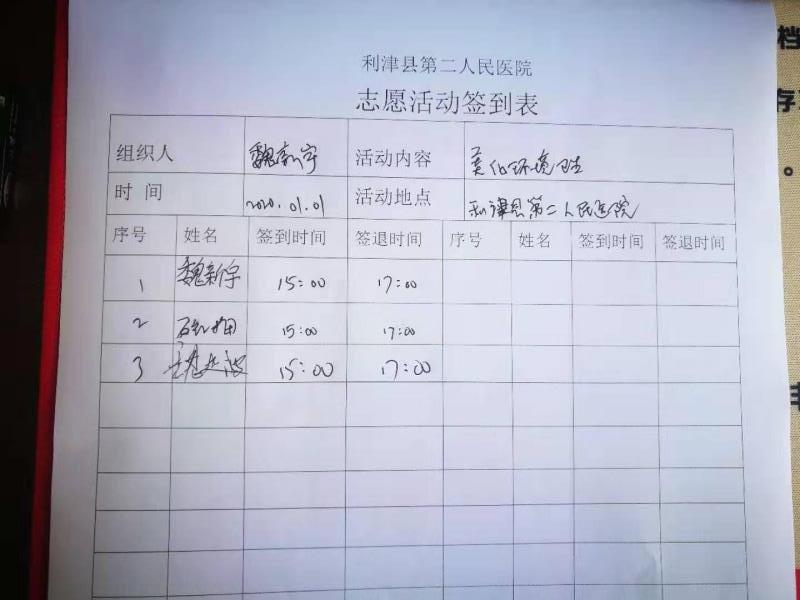 利津县第二人民医院
志愿活动签到表
组织人 魏新宇 活动内容 美化环境卫生
时 间 2020.01.01 活动地点 利津县第二人民医院
序号 姓名 签到时间 签退时间 序号 姓名 签到时间 签退时间
1 魏新宇 15:00 17:00
2 15:00 17:00
3 15:00 17:00
档
存
。